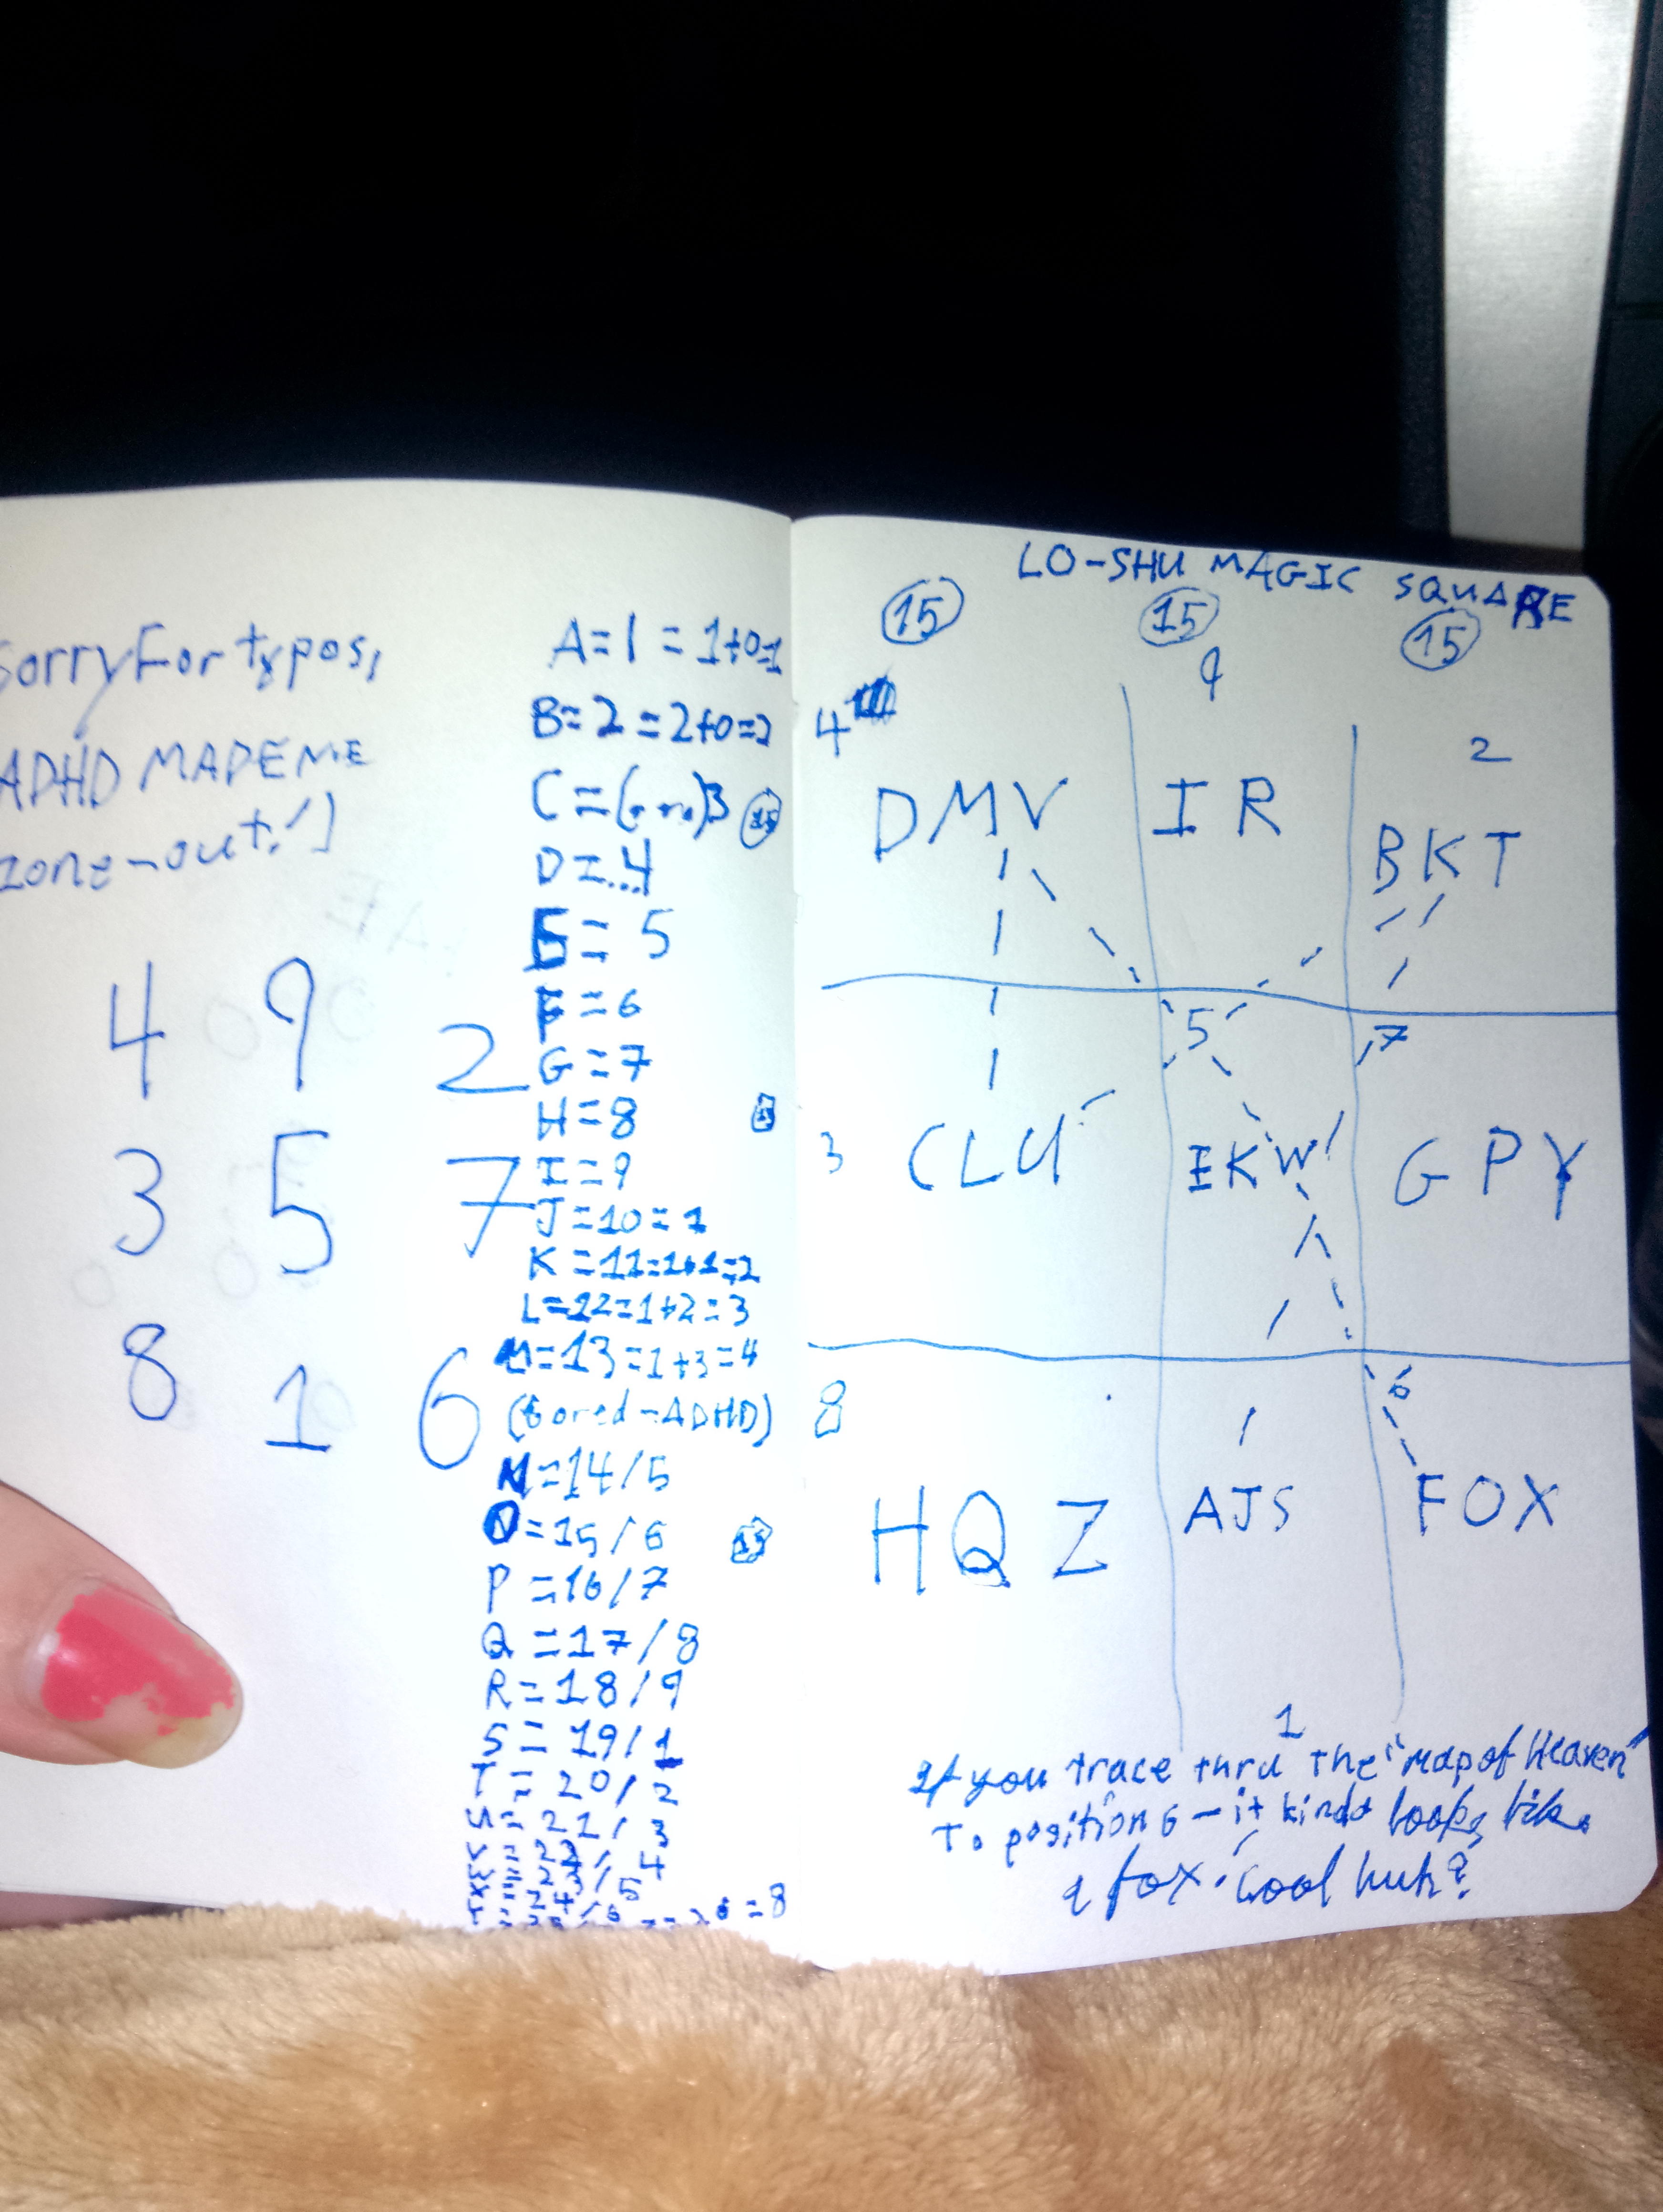 SorryFor typos,
ADHD MADE ME
zone-out!]
4 9 2
3 5 7
8 1 6
A=1=1+0=1
B=2=2+0=2
C=(....)3 15
D=...4
E=5
F=6
G=7
H=8
I=9
J=10=1
K=11=1+1=2
L=12=1+2=3
M=13=1+3=4
(bored-ADHD)
N=14/5
O=15/6 15
P=16/7
Q=17/8
R=18/9
S=19/1
T=20/2
U=21/3
V=22/4
W=23/5
X=24/6
=8
LO-SHU MAGIC SQUARE
15 15 15
4 9 2
DMV IR BKT
5 7
3 CLU EKW GPY
8 6
HQZ AJS FOX
1
If you trace thru the "map of Heaven"
To position 6 - it kinda looks like
a fox. Cool huh?